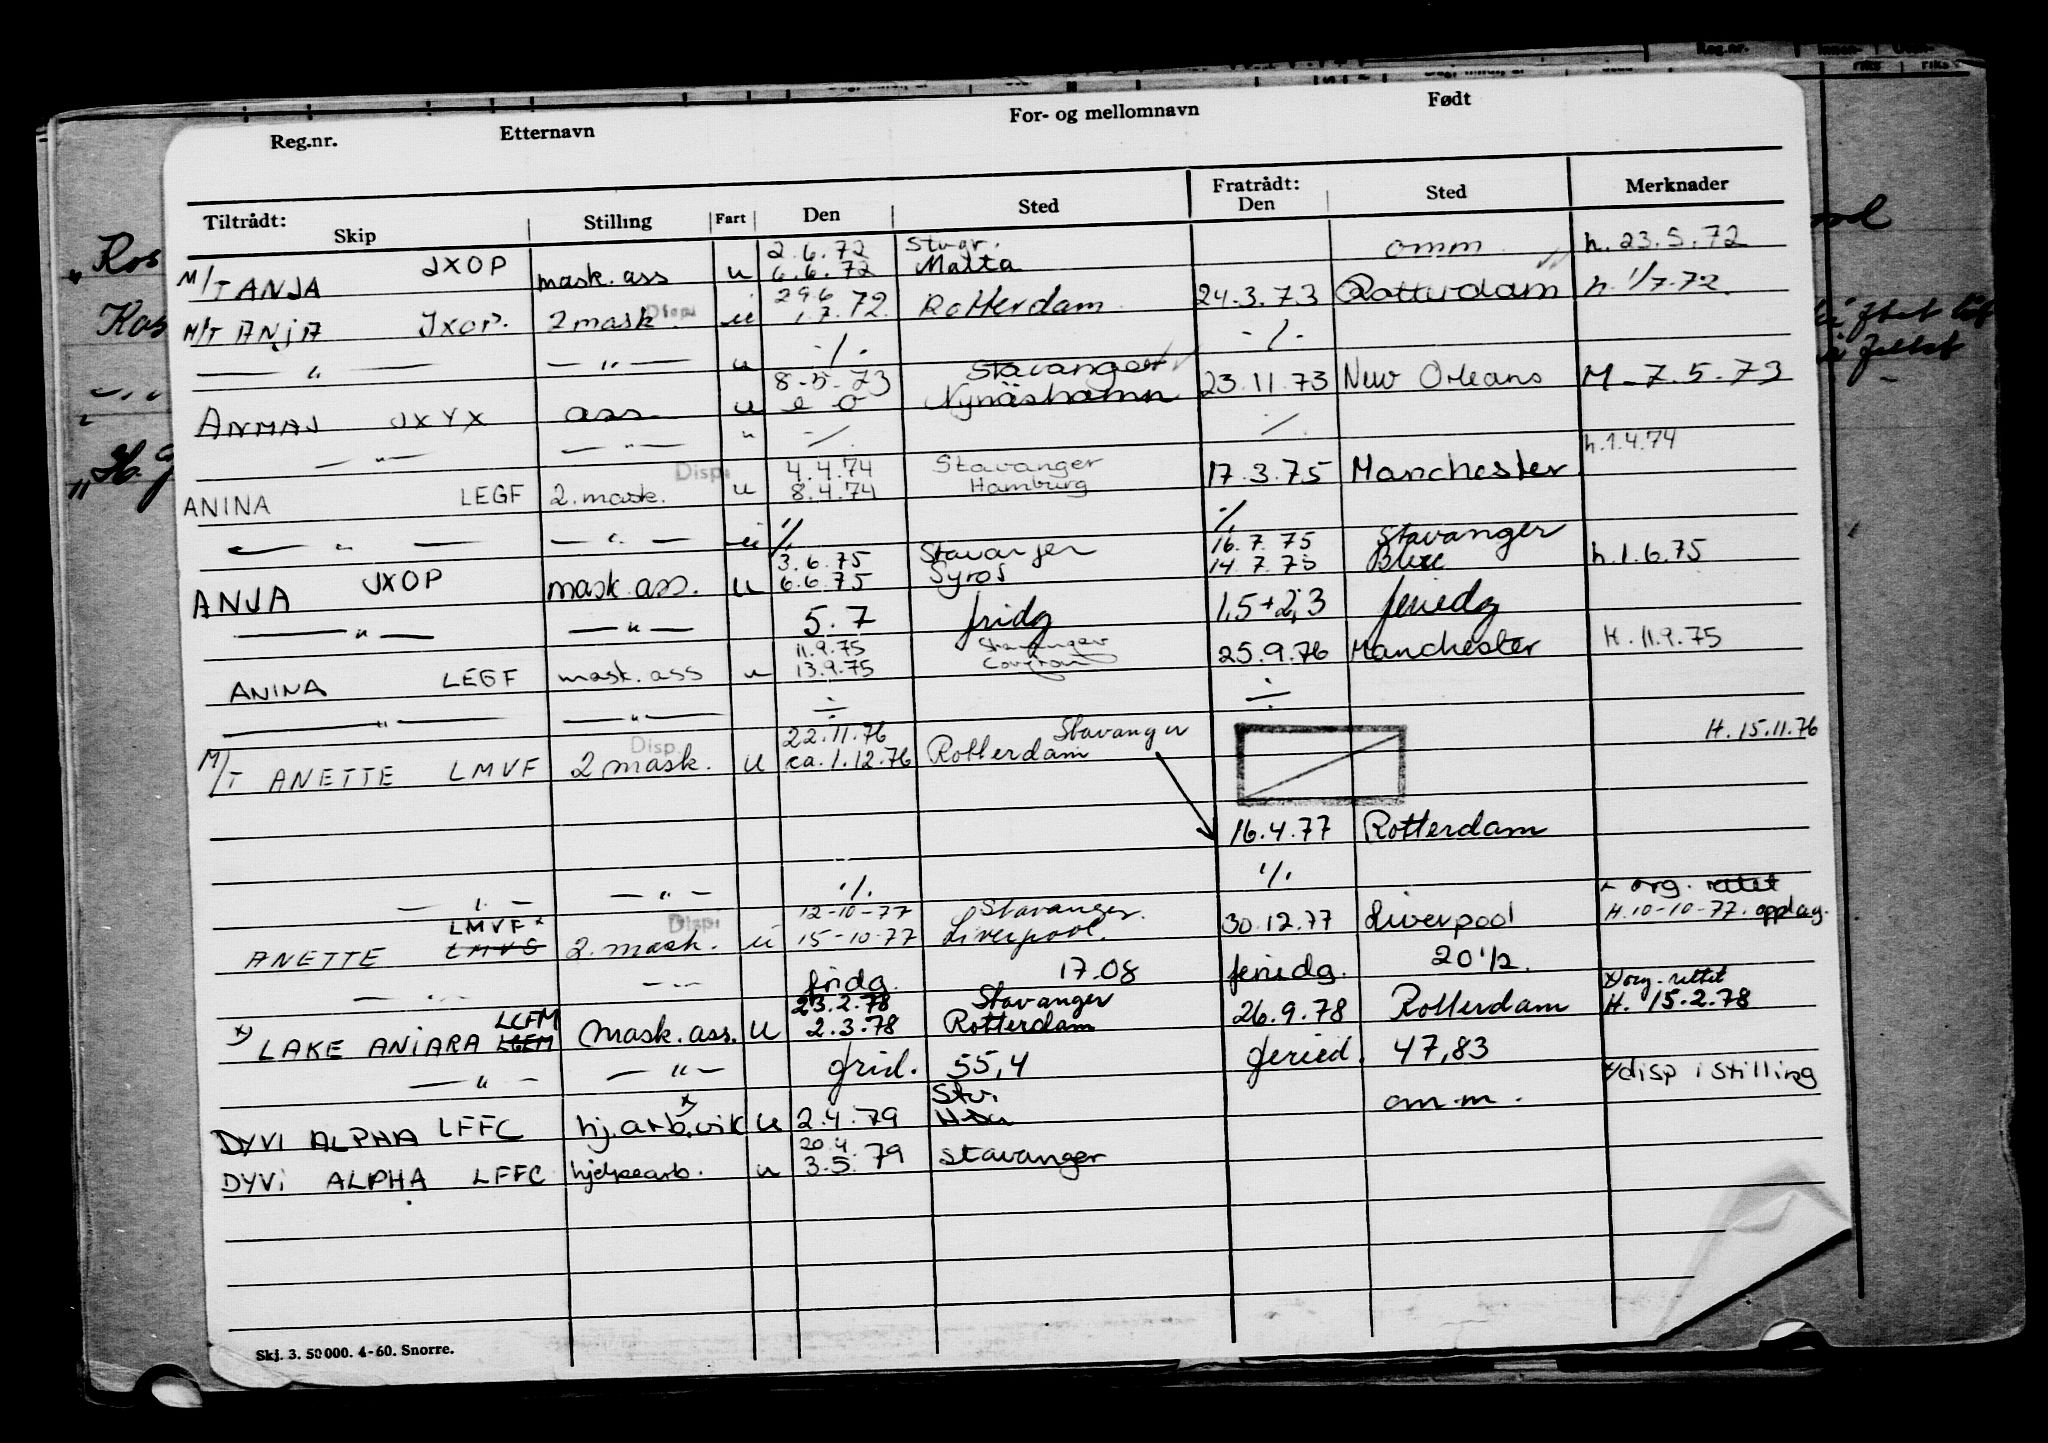 Reg.nr. Etternavn For- og mellomnavn Født
Tiltrådt: Skip Stilling Fart Den Sted Fratrådt: Den Sted Merknader
2.6.72 Stvgr.
M/T ANJA JXOP mask. ass u 6.6.72 Malta omm. h. 23.5.72
29.6
M/T ANJA JXOP. 2 mask. Disp. u 1.7.72. Rotterdam 24.3.73 Rotterdam h. 1/7-72.
— " — — " — u -/- -/-
8-5-73 Stavanger
ANMAJ JXYX ass u Nynäshamn 23.11.73 New Orleans M-7.5-73
— " — — " — " -/- -/-
4.4.74 Stavanger h.1.4.74
ANINA LEGF 2. mask. Disp. u 8.4.74 Hamburg 17.3.75 Manchester
— " — — " — u -/- -/-
3.6.75 Stavanger 16.7.75 Stavanger
ANJA JXOP mask. ass. u 6.6.75 Syros 14.7.75 h.1.6.75
— " — — " — 5.7 fridg 1,5+2,3 feriedg
11.9.75 Stavanger
ANINA LEGF mask. ass u 13.9.75 Coryton 25.9.76 Manchester H. 11.9.75
— " — — " — ÷ ÷
22.11.76 Stavanger H. 15.11.76
M/T ANETTE LMVF 2 mask. Disp. u ca. 1.12.76 Rotterdam
16.4.77 Rotterdam
— " — — " — -/- -/-
LMVF x 12-10-77 Stavanger. x org. rettet
ANETTE LMVS 2. mask. Disp. u 15-10-77 Liverpool. 30.12.77 Liverpool H. 10-10-77. oppdag.
— " — — " — fridg. 17.08 feriedg. 20 1/2.
LCFM 23.2.78 Stavanger x) org. rettet
x) LAKE ANIARA LGEM Mask. ass. U 2.3.78 Rotterdam 26.9.78 Rotterdam H. 15.2.78
— " — — " — frid. 55,4 feried. 47,83
x Stv. x/disp i stilling
DYVI ALPHA LFFC hj.arb.vik u 2.4.79 om.m.
20.4
DYVI ALPHA LFFC hjelpearb. u 3.5.79 Stavanger
Skj. 3. 50000. 4-60. Snorre.